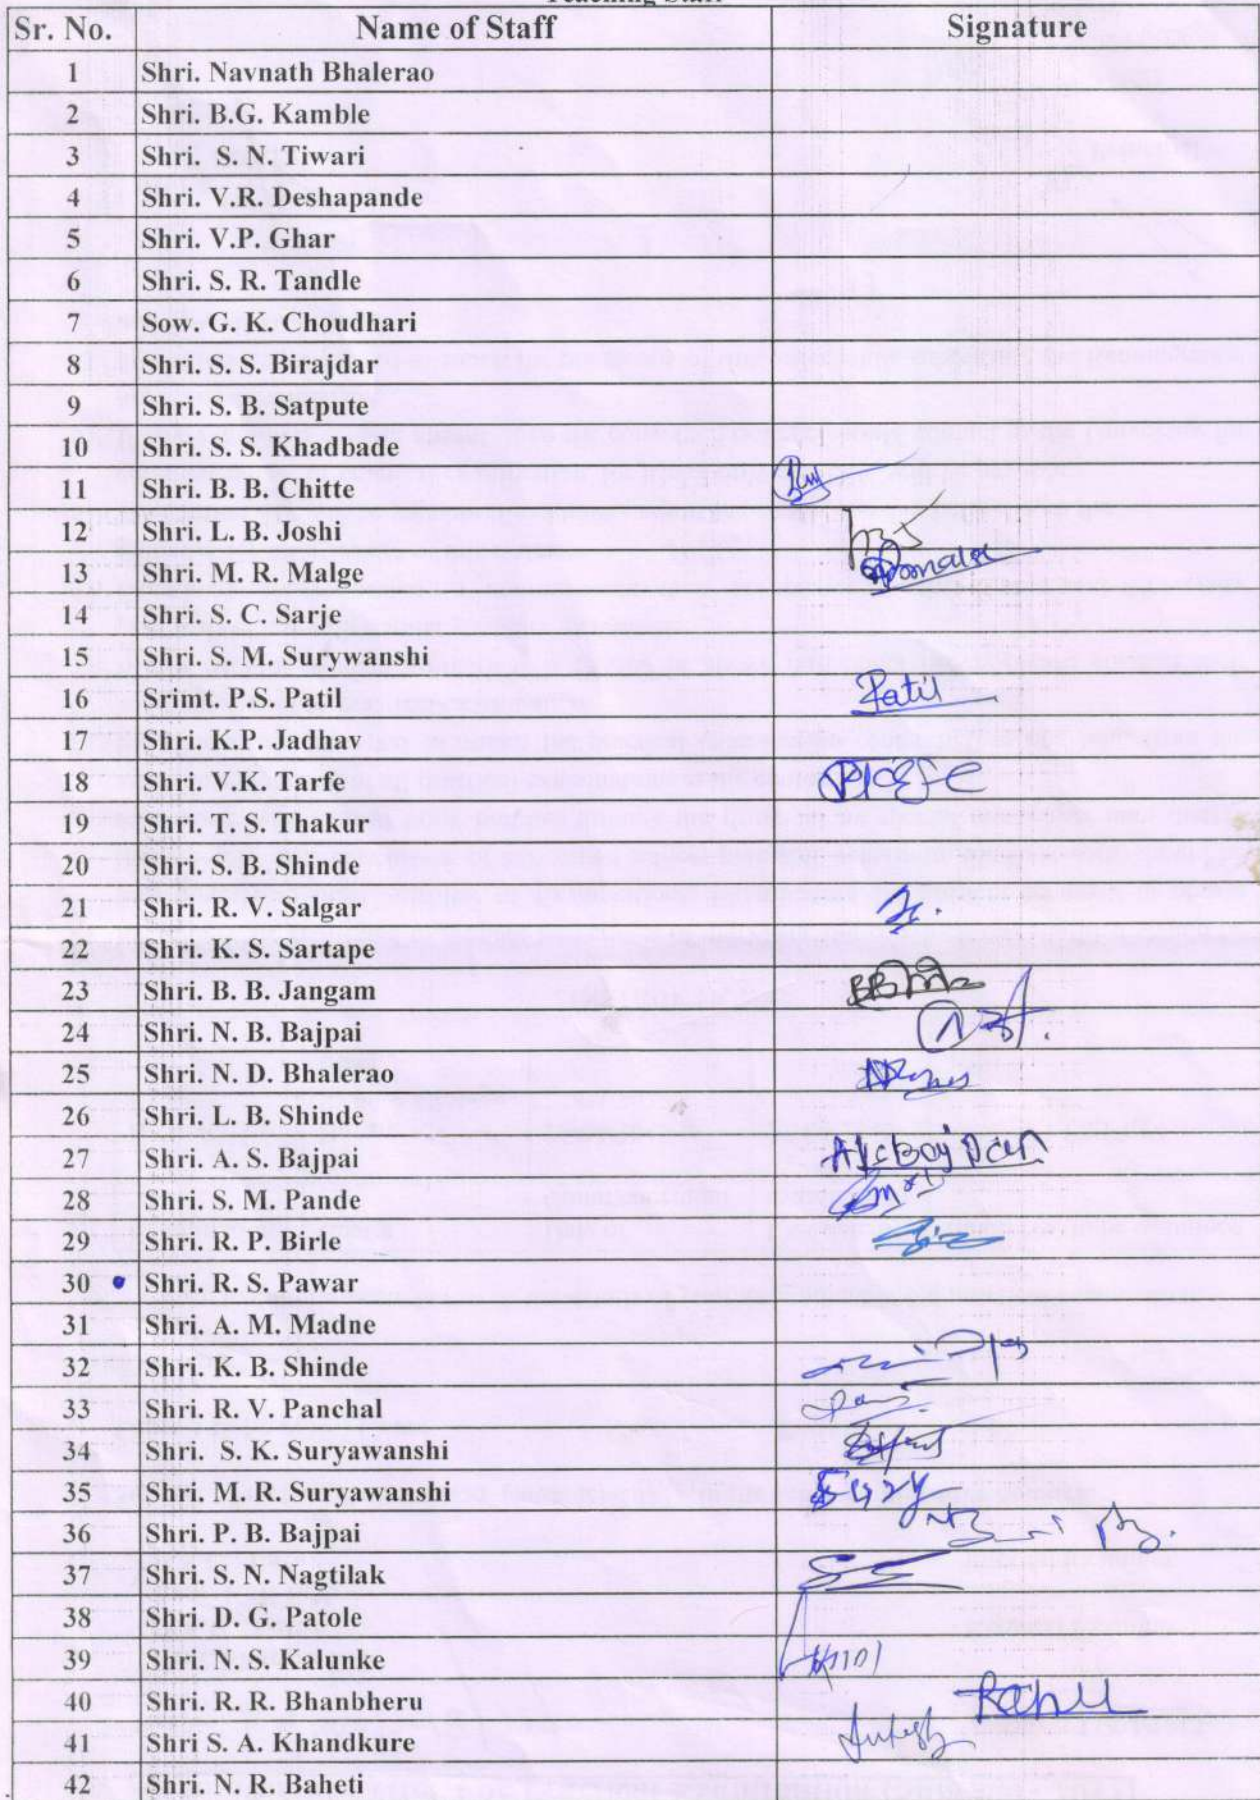 Teaching Staff
Sr. No. Name of Staff Signature
1 Shri. Navnath Bhalerao
2 Shri. B.G. Kamble
3 Shri. S. N. Tiwari
4 Shri. V.R. Deshapande
5 Shri. V.P. Ghar
6 Shri. S. R. Tandle
7 Sow. G. K. Choudhari
8 Shri. S. S. Birajdar
9 Shri. S. B. Satpute
10 Shri. S. S. Khadbade
11 Shri. B. B. Chitte
12 Shri. L. B. Joshi
13 Shri. M. R. Malge
14 Shri. S. C. Sarje
15 Shri. S. M. Surywanshi
16 Srimt. P.S. Patil Patil
17 Shri. K.P. Jadhav
18 Shri. V.K. Tarfe
19 Shri. T. S. Thakur
20 Shri. S. B. Shinde
21 Shri. R. V. Salgar
22 Shri. K. S. Sartape
23 Shri. B. B. Jangam
24 Shri. N. B. Bajpai
25 Shri. N. D. Bhalerao
26 Shri. L. B. Shinde
27 Shri. A. S. Bajpai
28 Shri. S. M. Pande
29 Shri. R. P. Birle
30 Shri. R. S. Pawar
31 Shri. A. M. Madne
32 Shri. K. B. Shinde
33 Shri. R. V. Panchal
34 Shri. S. K. Suryawanshi
35 Shri. M. R. Suryawanshi
36 Shri. P. B. Bajpai
37 Shri. S. N. Nagtilak
38 Shri. D. G. Patole
39 Shri. N. S. Kalunke
40 Shri. R. R. Bhanbheru
41 Shri S. A. Khandkure
42 Shri. N. R. Baheti